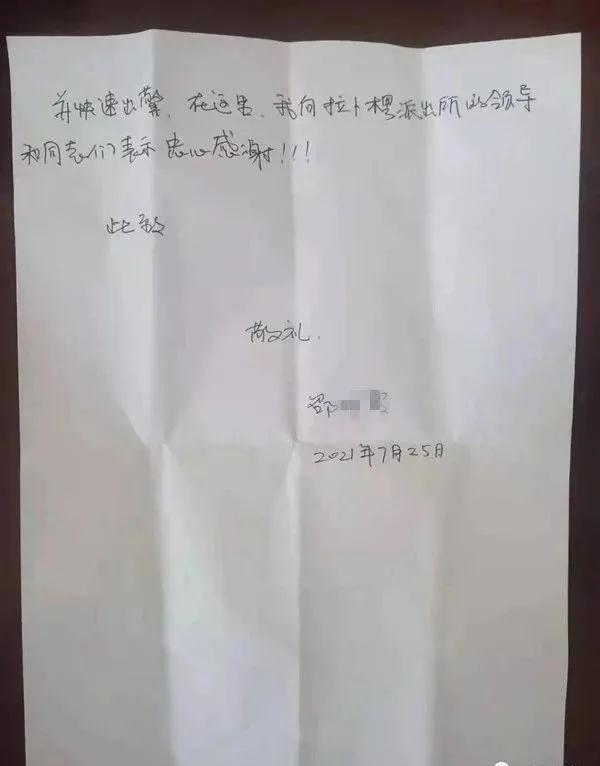 并快速出警，在这里，我向拉卜楞派出所的领导
和同志们表示忠心感谢！！！
此致
敬礼.
邵
2021年7月25日